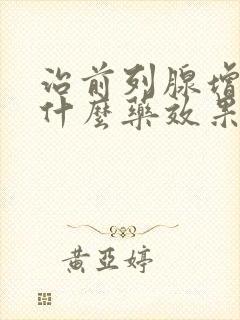 治前列腺增
什麼藥效果
黃亞婷